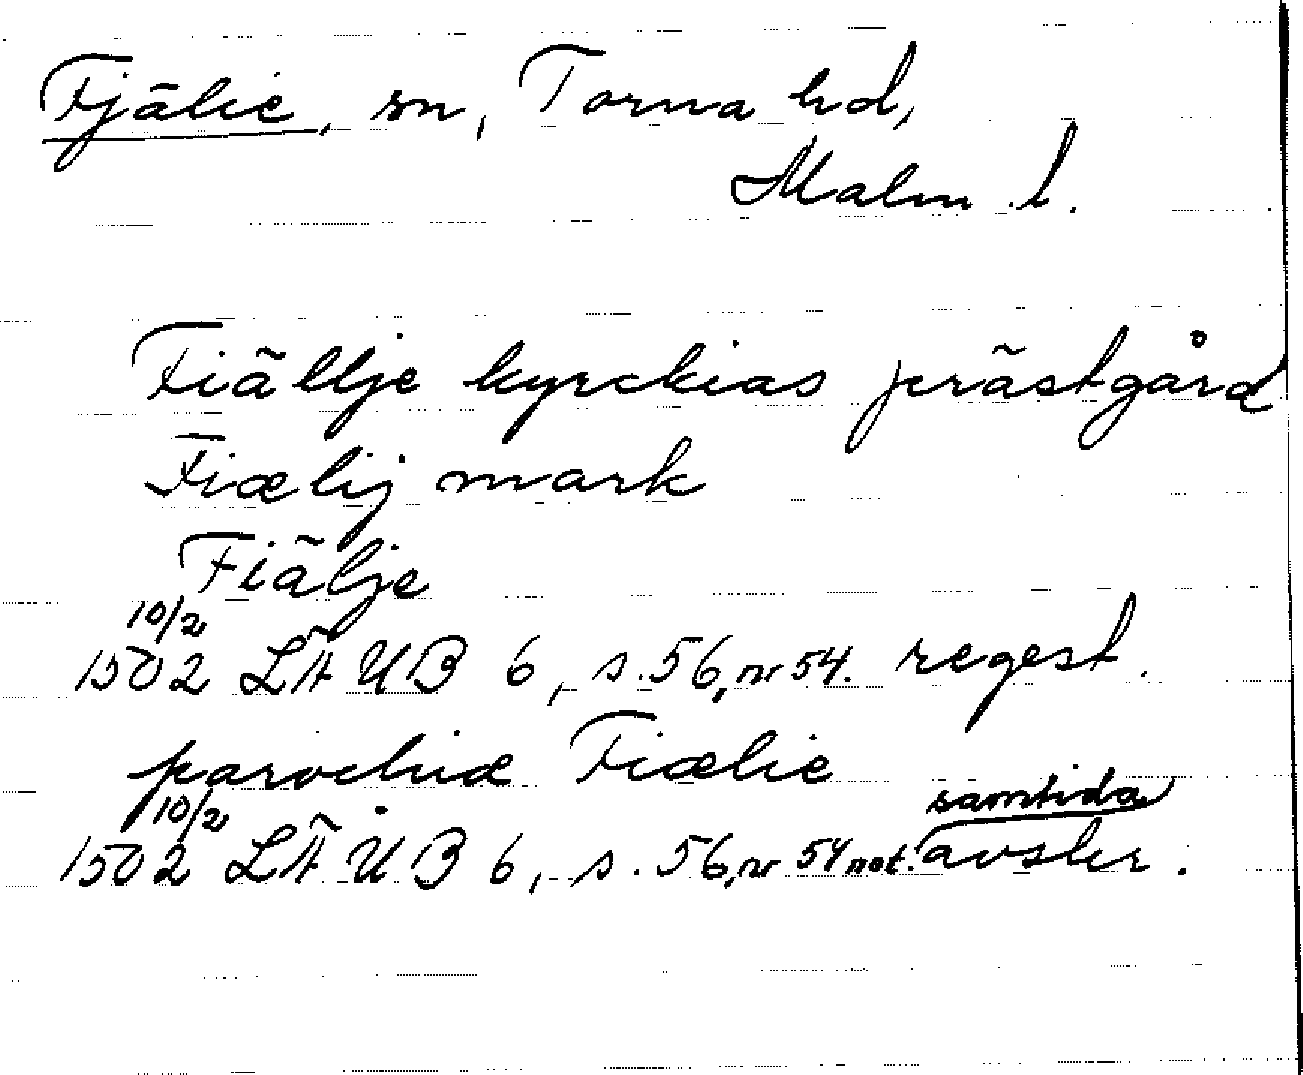 Fjälie, sn, Torna hd,
Malm. l.
Fiällje kyrckias prästgård
Fiælij mark
Fiälje
10/2
1502 LÄUB 6, s. 56, nr 54. regest.
parochiæ Fiælie
10/2 samtida
1502 LÄUB 6, s. 56, nr 54 not. avskr.